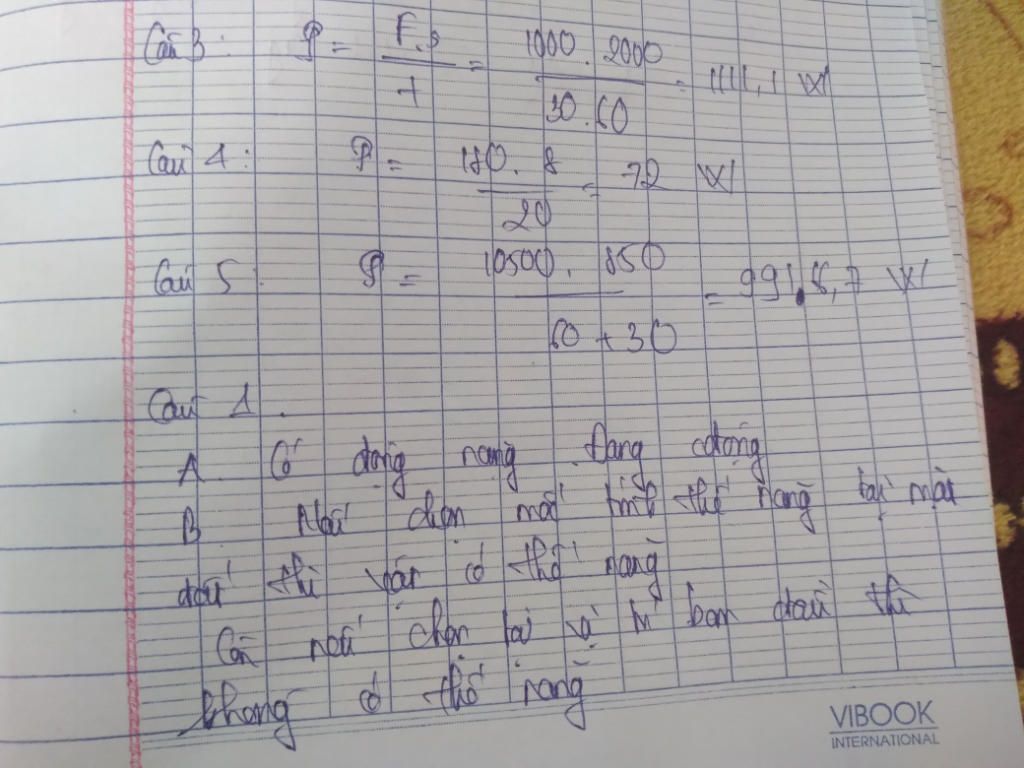 Câu 3: P = F.s / t = 1000. 2000 / 30.60 = 1111,1 W
Câu 4: P = 180. 8 / 20 = 72 W
Câu 5: P = 10500. 850 / 60 + 30 = 991.6,7 W
Câu 1.
A Có động năng đang cđộng
B Nếu chọn mốc tính thế năng tại mặt
đất thì vẫn có thế năng
Còn nếu chọn tại vị trí ban đầu thì
không có thế năng
VIBOOK
INTERNATIONAL